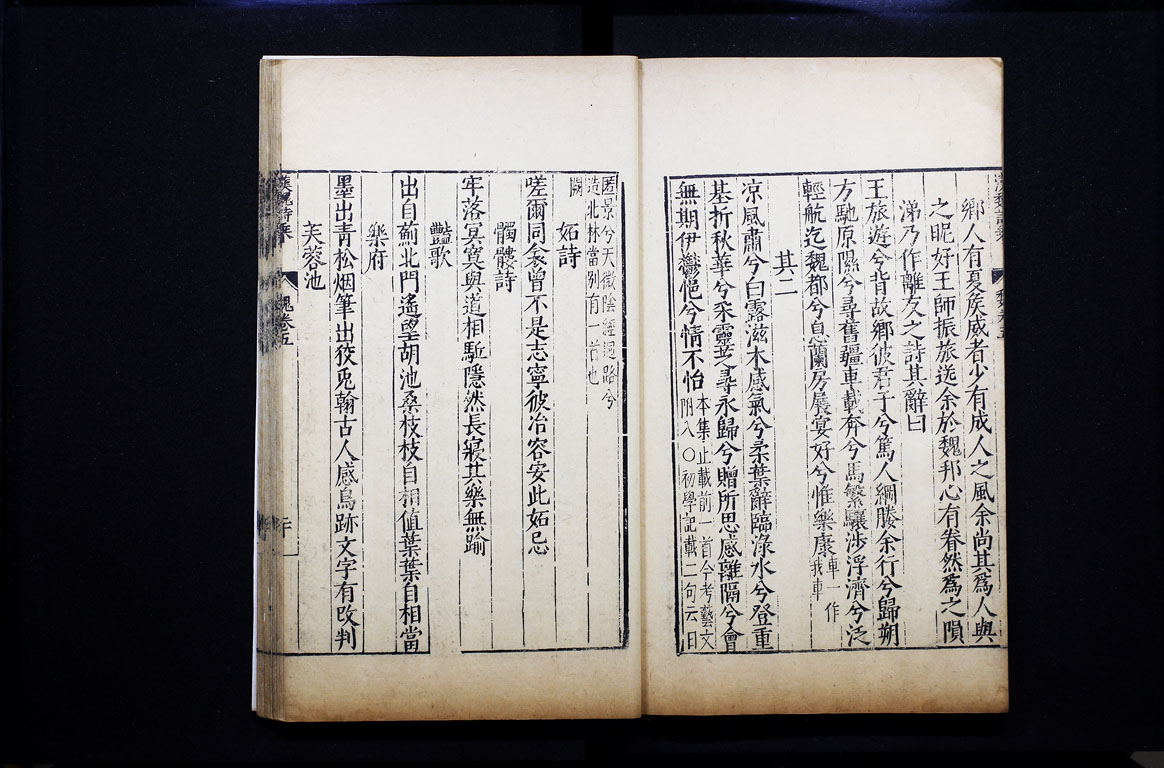 鄉人有夏侯威者少有成人之風余尚其爲人與
之昵好王師振旅送余於魏邦心有眷然爲之隕
涕乃作離友之詩其辭曰
王旅遊兮背故鄉彼君子兮篤人綱媵余行兮歸朔
方馳原隰兮尋舊疆車載奔兮馬繁驤涉浮濟兮泛
輕航迄魏都兮息蘭房展宴好兮惟樂康車一作我車
其二
凉風肅兮白露滋木感氣兮柔葉辭臨淥水兮登重
基折秋華兮采靈芝尋永歸兮贈所思感離隔兮會
無期伊鬱悒兮情不怡本集止載前一首今考藝文附入○初學記載二句云日
匿景兮天微陰經迥路兮造北林當別有一首也
闕
妬詩
嗟爾同衾曾不是志寧彼冶容安此妬忌
髑髏詩
牢落冥寞與道相駈隱然長寢其樂無踰
豔歌
出自薊北門遙望胡池桑枝枝自相值葉葉自相當
樂府
墨出青松烟筆出狡兎翰古人感鳥跡文字有改判
芙蓉池
漢魏詩集
魏卷五